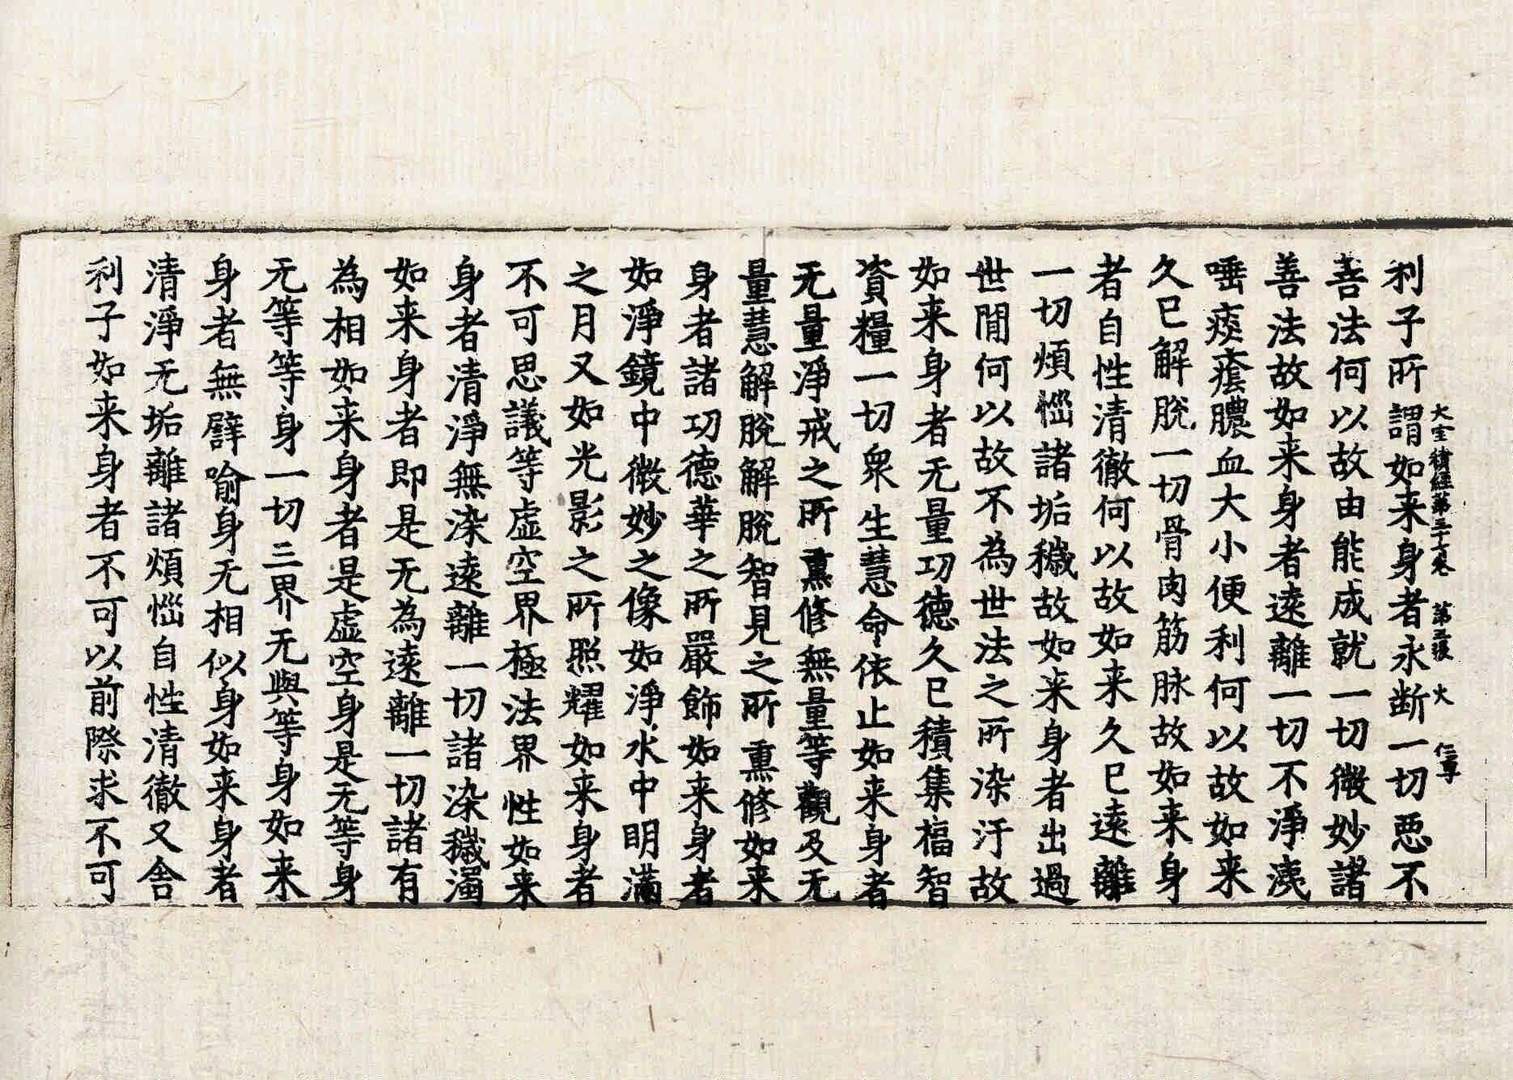 大宝積經第三十七卷 第五張 火 仁亨
利子所謂如来身者永断一切惡不
善法何以故由能成就一切微妙諸
善法故如来身者遠離一切不淨洟
唾痰癊膿血大小便利何以故如来
久已解脫一切骨肉筋脉故如来身
者自性清徹何以故如来久已遠離
一切煩惱諸垢穢故如来身者出過
世閒何以故不為世法之所染汙故
如来身者无量功德久已積集福智
資糧一切衆生慧命依止如来身者
无量淨戒之所熏修無量等觀及无
量慧解脫解脫智見之所熏修如来
身者諸功德華之所嚴飾如来身者
如淨鏡中微妙之像如淨水中明滿
之月又如光影之所照耀如来身者
不可思議等虛空界極法界性如来
身者清淨無染遠離一切諸染穢濁
如来身者即是无為遠離一切諸有
為相如来身者是虛空身是无等身
无等等身一切三界无與等身如来
身者無譬喻身无相似身如来身者
清淨无垢離諸煩惱自性清徹又舍
利子如来身者不可以前際求不可